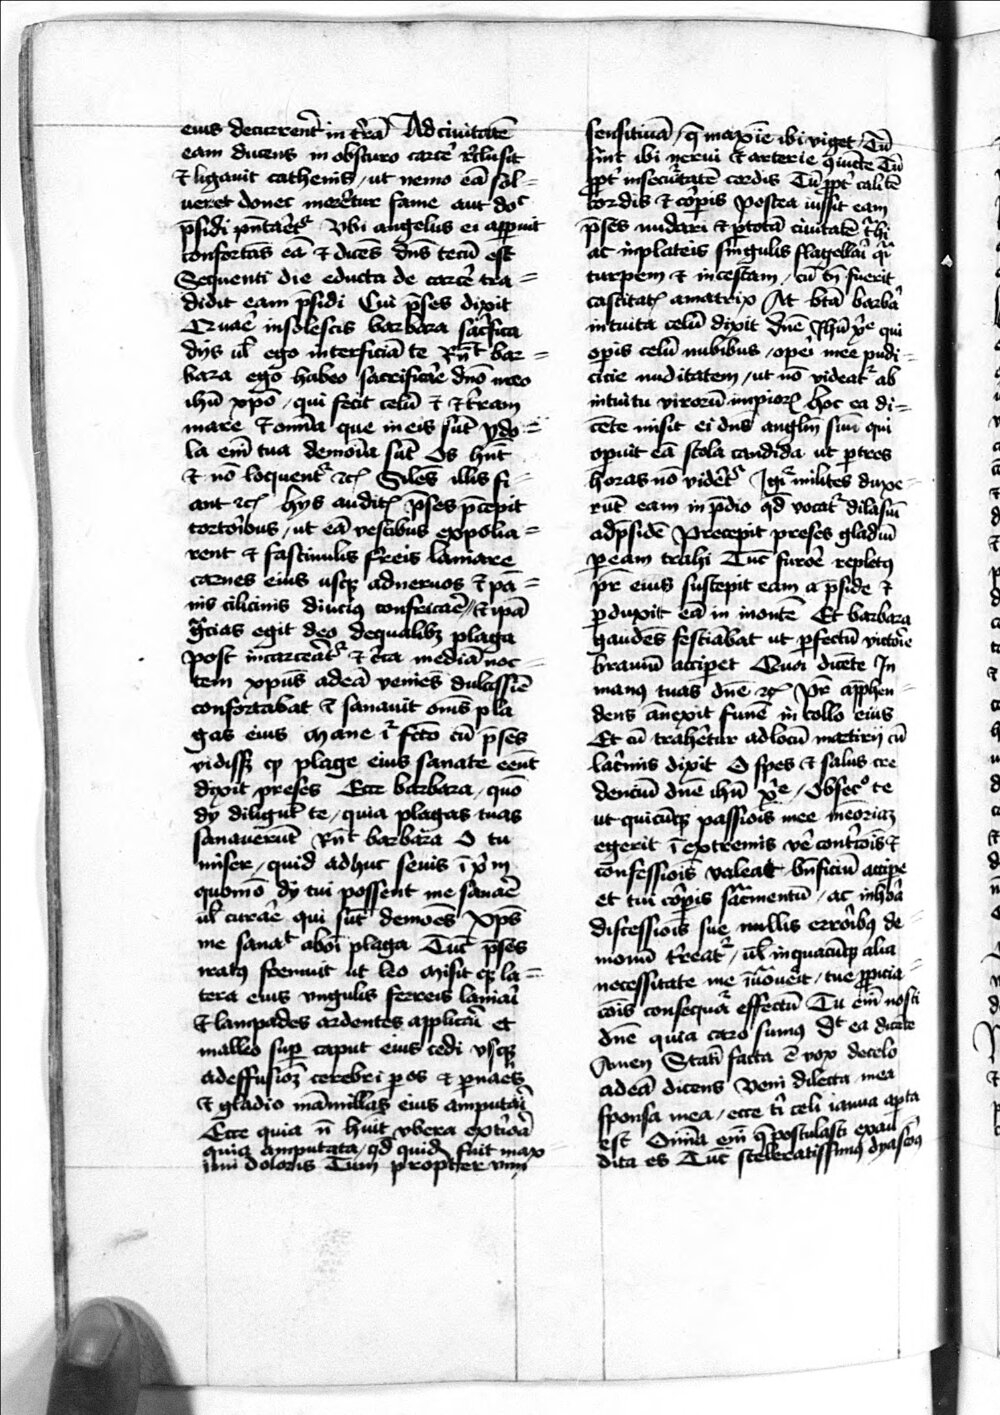 eius decurrent in trā Ad ciuitatē
eam ducens in obscuro carcē rclusit
et ligauit cathenis / ut nemo eā sol=
ueret donec morētur fame aut doc
psidi pntarēt Vbi angelus ei apparuit
confortās eā et dicēs dn̄s tecū est
Sequenti die educta de carcē tra=
didit eam psidi Cui pses dixit
Quare insolescis barbara sacrifica
dijs ul ego interficiā te Rn̄t bar=
bara ego habeo sacrificare dno meo
ihu xpo / qui fecit celū et terram
mare et omnia que in eis sūt ydo=
la em̄ tua demonia sūt Os hn̄t
et nō loquent̄ etc Siles illis fi=
ant etc hijs auditis pses pcepit
tortoribus / ut eā vestibus expolia=
rent et fastinulis freis laniare
carnes eius usqȝ ad neruos et pā=
nis cilicinis diucius confricare / et ipā
grcias egit deo de qualibȝ plaga
post incarceat̄ et circa mediā noc=
tem xpus ad eā venies dulcissie
confortabat et sanauit ōnis pla
gas eius Mane ī fcto cū pses
vidissȝ qȝ plage eius sanate eēnt
dixit preses Ecce barbara / quō
dij diligunt te / quia plagas tuas
sanauerūt Rn̄t barbara O tu
miser / quid adhuc seuis ī
quomō dij tui possent me sanare
ul curare qui sūt demoēs Xps
me sanat ab oī plaga Tūc pses
iratus fremuit ut leo Misit qȝ la=
tera eius vngulis ferreis laniari
et lampades ardentes applicari et
malleo sup caput eius cedi vsqȝ
ad effusionȝ cerebri p os et p nares
et gladio māmillas eius amputari
Ecce quia n̄ huit vbera
quia amputata / qd quidē fuit max
imi doloris Tum propter vim
sensitiuā / q̄ maxie ibi viget / Tū
sint ibi nerui et arterie Tū
ppt insecuritatē cordis Tū ppt
cordis et corpis Postea iussit eam
pses nudari et p totā ciuitatē trhi
ac in plateis singulis flagellari qsi
turpem et incestam / cū tn̄ fuerit
castitatis amatrix At btā barbara
intuita celū dixit dn̄e ihu xpe qui
opis celū nubibus / operi mee pudi=
cicie nuditatem / ut nō videat̄ ab
intuitu virorū impiorȝ hoc ea di=
cēte misit ei dns anglm̄ suū qui
opuit eā stola candida ut p tres
horas nō vidēt̄ Igit̄ milites duxe=
rūt eam in pdio qd vocat̄ dilasiū
ad psidē Precepit preses gladiū
p eam trahi Tūc furore repletus
pr eius suscepit eam a pside et
pduxit eā in montē Et barbara
gaudēs festīabat ut pfectū victorie
brauiū acciperet Quoi dicēte In
manus tuas dn̄e etc Pr apphen=
dens ānexit funē in collo eius
Et cū trahetur ad locū martirij cū
lacrimis dixit O spes et salus cre
dentiū dn̄e ihu xpe / Obsecro te
ut quicūqȝ passiois mee meōriaȝ
egerit ī extremis vere contrcōis et
confessiois valeat bn̄ficiū accipe
et tui corpis sacrmentū / ac in hora
discessiois sue nullis erroribus de=
monū treat̄ / ul in quacūqȝ alia
necessitate me / tue ppicia=
cōis consequat̄ effectū Tu em̄ nosti
dn̄e quia caro sumus Et ea dicēte
Amen Stati facta ē vox de celo
ad eā dicens Veni dilecta mea
sponsa mea / ecce tibi celi ianua apta
est Omnia em̄ q̄ postulasti exau
dita es Tūc sceleratissimus dyascorus